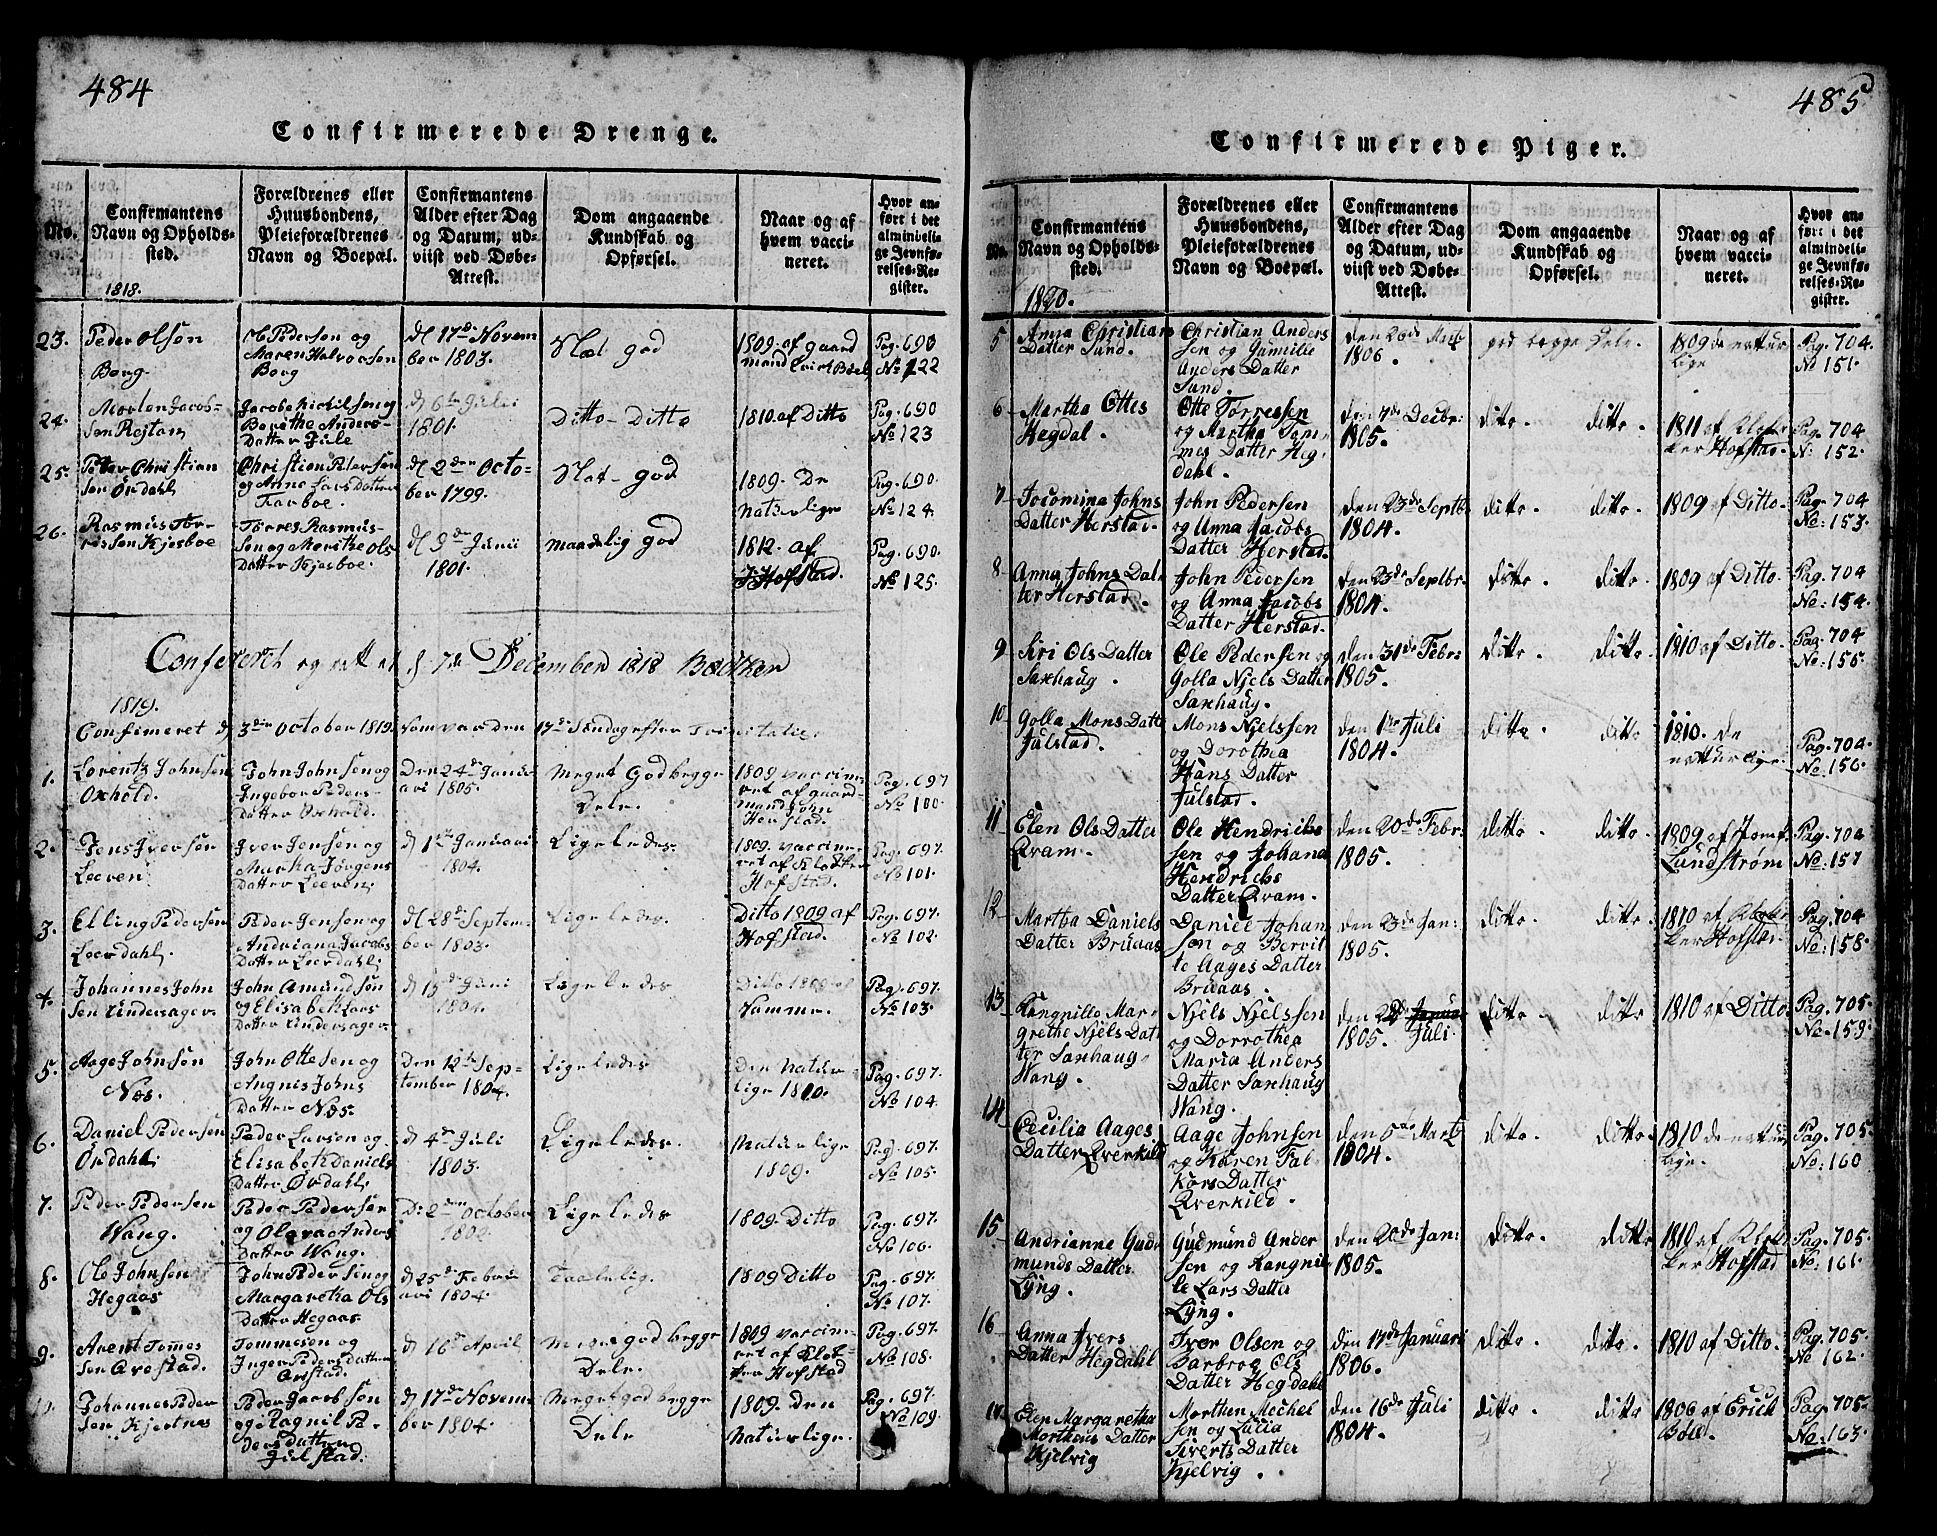 484
Confirmerede Drenge.
No.
Confirmantens
Navn og Opholds-
sted.
Forældrenes eller
Huusbondens,
Pleieforældrenes
Navn og Boepæl.
Confirmantens
Alder efter Dag
og Datum, ud-
viist ved Døbe-
Attest.
Dom angaaende
Kundskab og
Opførsel.
Naar og af
hvem vacci-
neret.
Hvor an-
ført i det
almindeli-
ge Jevnfø-
relses-Re-
gister.
1818.
23.
Peder Olsen
Borg
Pedersen og
Maren Halvorsen
Borg
d 17de Novem
ber 1803.
Slet god
1809. af gaard
mand
Pag. 690
No 122
24.
Morten Jacob-
sen Rojtan
Datter Jule
d 6te Julii
1801.
Ditto - Ditto
1810. af Ditto
Pag. 690
No 123
25.
Peter Christian
sen Ørdahl
Christian Petersen
og Anne Lars Datter
Farboe.
d 2den Octo-
ber 1799.
Slet - god
1809. De
naturlige
Pag. 690.
No 124.
26.
Rasmus Tør-
res Sen Kjesboe
Tørres Rasmus-
Sen og Merethe Ols
Datter Kjesboe.
d 9de Junii
1801.
maadelig god
1812. af
J. Hofstad.
Pag. 690.
No 125.
d 7de December 1818
1819.
Confirmeret d 3die October 1819. som var den 17de Søndag efter Trinitatis
1.
Lorentz Johnsen
Oxhold.
John Johnsen og
Ingebor Peders-
Datter Oxhold.
Den 24de Janu
ari 1805.
Meget God begge
Dele.
1809 vaccine-
ret af gaard-
mand John
Herstad.
Pag. 697
No 100.
2.
Jens Iversen
Leeven
Iver Jensen og
Marka Jørgens
Datter Leeven.
d 1ste Januari
1804.
Ligeledes.
1809. vaccine-
ret af Klokker
Hofstad.
Pag. 697.
No 101.
3.
Elling Pedersen
Leerdahl.
Peder Jensen og
Andriana Jacobs
Datter Leerdahl.
d 28de Septem-
ber 1803.
Ligeledes.
Ditto 1809 af
Hofstad.
Pag. 697.
No 102.
4.
Johannes John
Sen Undersager.
John Amundsen
og Elisabeth Lars
Datter Undersager
d 15de Juni
1804.
Ligeledes
Ditto 1809 af
Samme.
Pag. 697.
No 103.
5.
Aage Johnsen
Næs.
John Ottesen og
Angnis Johns
Datter Næs.
Den 12te Sep-
tember 1804.
Ligeledes
Den Natur-
lige 1810.
Pag. 697.
No 104.
6.
Daniel Pedersen
Ørdahl.
Peder Larsen og
Elisabeth Daniels
Datter Ørdahl.
d 4de Juli
1803.
Ligeledes.
Naturlige
1809.
Pag. 697.
No 105.
7.
Peder Pedersen
Wang.
Peder Pedersen
og Olava Anders
Datter Wang.
De 2den October
1802.
Ligeledes
1809. Ditto
Pag. 697.
No 106.
8.
Ole Johnsen
Hegaas
John Pedersen og
Margaretha Ols
Datter Hegaas
d 25de Febru
ari 1804.
Taalelig.
1809 Ditto
Pag. 697.
No 107.
9.
Arent Tommes
Sen Ovestad.
Tommesen og
Inger Peders datter
Ovestad.
d 16de April
Meget god begge
Dele.
1809 vaccine-
ret af Klok-
ker Hofstad
Pag. 697.
No 108.
10.
Johannes Peder
Sen Kjestnes
Peder Jacobsen
og Ragnil Pe-
ders datter
Julstad.
d 17de Novem
ber 1804.
Meget god begge
Dele
1809. den
Naturlige.
Pag. 697.
No 109.
485
Confirmerede Piger.
No.
Confirmantens
Navn og Opholds-
sted.
Forældrenes eller
Huusbondens,
Pleieforældrenes
Navn og Boepæl.
Confirmantens
Alder efter Dag
og Datum, ud-
viist ved Døbe-
Attest.
Dom angaaende
Kundskab og
Opførsel.
Naar og af
hvem vacci-
neret.
Hvor an-
ført i det
almindeli-
ge Jevnfø-
relses-Re-
gister.
1820.
5
Anna Christians
Datter Sund.
Christian Anders
sen og Gunnilie
Anders Datter
Sund.
den 20de Marts
1806.
god begge Dele.
1809 de nattur
lige
Pag. 704.
No 151.
6
Martha Ottes
Hegdal.
Otte Tørressen
og Martha Tom-
mes Datter Heg-
dahl.
den 7de Decbr:
1805.
ditto. ditto.
1811 af Klok-
ker Hofstad.
Pag. 704
N: 152.
7
Jocomina Johns
Datter Herstad.
John Pedersen
og Anna Jacobs
Datter Herstad.
den 23de Septbr
1804.
ditto. ditto.
1809 af Ditto.
Pag. 704
No: 153.
8
Anna Johns Dat-
ter Herstad.
John Pedersen
og Anna Jacobs
Datter Herstad.
den 23de Septbr.
1804.
ditto. ditto.
1809 af Ditto.
Pag. 704
No: 154.
9
Siri Ols Datter
Saxhaug.
Ole Pedersen og
Golla Njels Datter
Saxhaug.
den 31de Febr:
1805.
ditto. ditto.
1810 af Ditto.
Pag. 704
No: 155.
10
Golla Mons Datter
Julstad.
Mons Njelssen
og Dorothea
Hans Datter
Julstad.
den 1te Juli
1804.
ditto. ditto
1810. de
natturlige.
Pag. 704.
No: 156.
11
Elen Ols Datter
Qvam.
Ole Hendrichs
sen og Johana
Hendrichs
Datter Qvam.
den 20de Febr.
1805.
ditto. ditto.
1809 af Jomf.
Lundstrøm
Pag. 704
No: 157
12
Martha Daniels
Datter Bruaas
Daniel Johan
sen og Berit-
te Aages Datter
Bruaas.
den 23de Jan:
1805.
ditto. ditto.
1810 af Klok-
ker Hofstad.
Pag. 704
No: 158.
13
Rangnille Mar-
grethe Njels Dat
ter Saxhaug-
Wang.
Njels Njelssen
og Dorrothea
Maria Anders
Datter Saxhaug
Wang.
den 22de Januar
1805. Juli
ditto. ditto
1810 af Ditto.
Pag. 705.
No: 159.
14
Cecilia Aages
Datter Qverkild
Aage Johnsen
og Karen Fal-
kors Datter
Qverkild.
den 5te Marts
1804.
ditto. ditto.
1810 de nattur
lige.
Pag. 705.
No: 160
15
Andrianne Gud-
munds Datter
Lyng.
Gudmund Ander
sen og Rangnil-
le Lars Datter
Lyng.
den 20de Jan:
1805.
ditto. ditto
1810 af Klok-
ker Hofstad
Pag. 705.
No: 161.
16
Anna Ivers
Datter Hegdahl
Iver Olsen og
Barbro Ols
Datter Hegdahl
den 17de Januari
1806.
ditto. ditto.
1810 af Ditto.
Pag. 705.
No 162.
17
Elen Margaretha
Morthens Datter
Kjelvig
Morthen Mechel
sen og Lucia
Siverts Datter
Kjelvig.
den 16de Juli
1804.
ditto. ditto.
1806 af Erick
Boed.
Pag. 705.
No: 163.